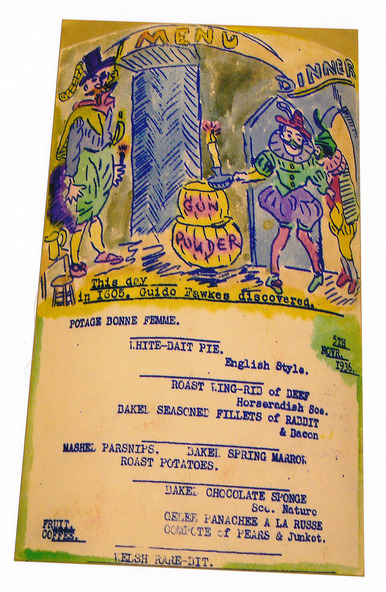 MENU
DINNER
GUN
POWDER
This day
in 1605. Guido Fawkes discovered.
5TH
NOVR.
1936.
POTAGE BONNE FEMME.
WHITE-BAIT PIE.
English Style.
ROAST WING-RIB of BEEF
Horseradish Sce.
BAKED SEASONED FILLETS of RABBIT
& Bacon
MASHED PARSNIPS. BAKED SPRING MARROW
ROAST POTATOES.
BAKED CHOCOLATE SPONGE
Sce. Nature
GELEE PANACHEE A LA RUSSE
COMPOTE of PEARS & Junket.
FRUIT
COFFEE.
WELSH RARE-BIT.